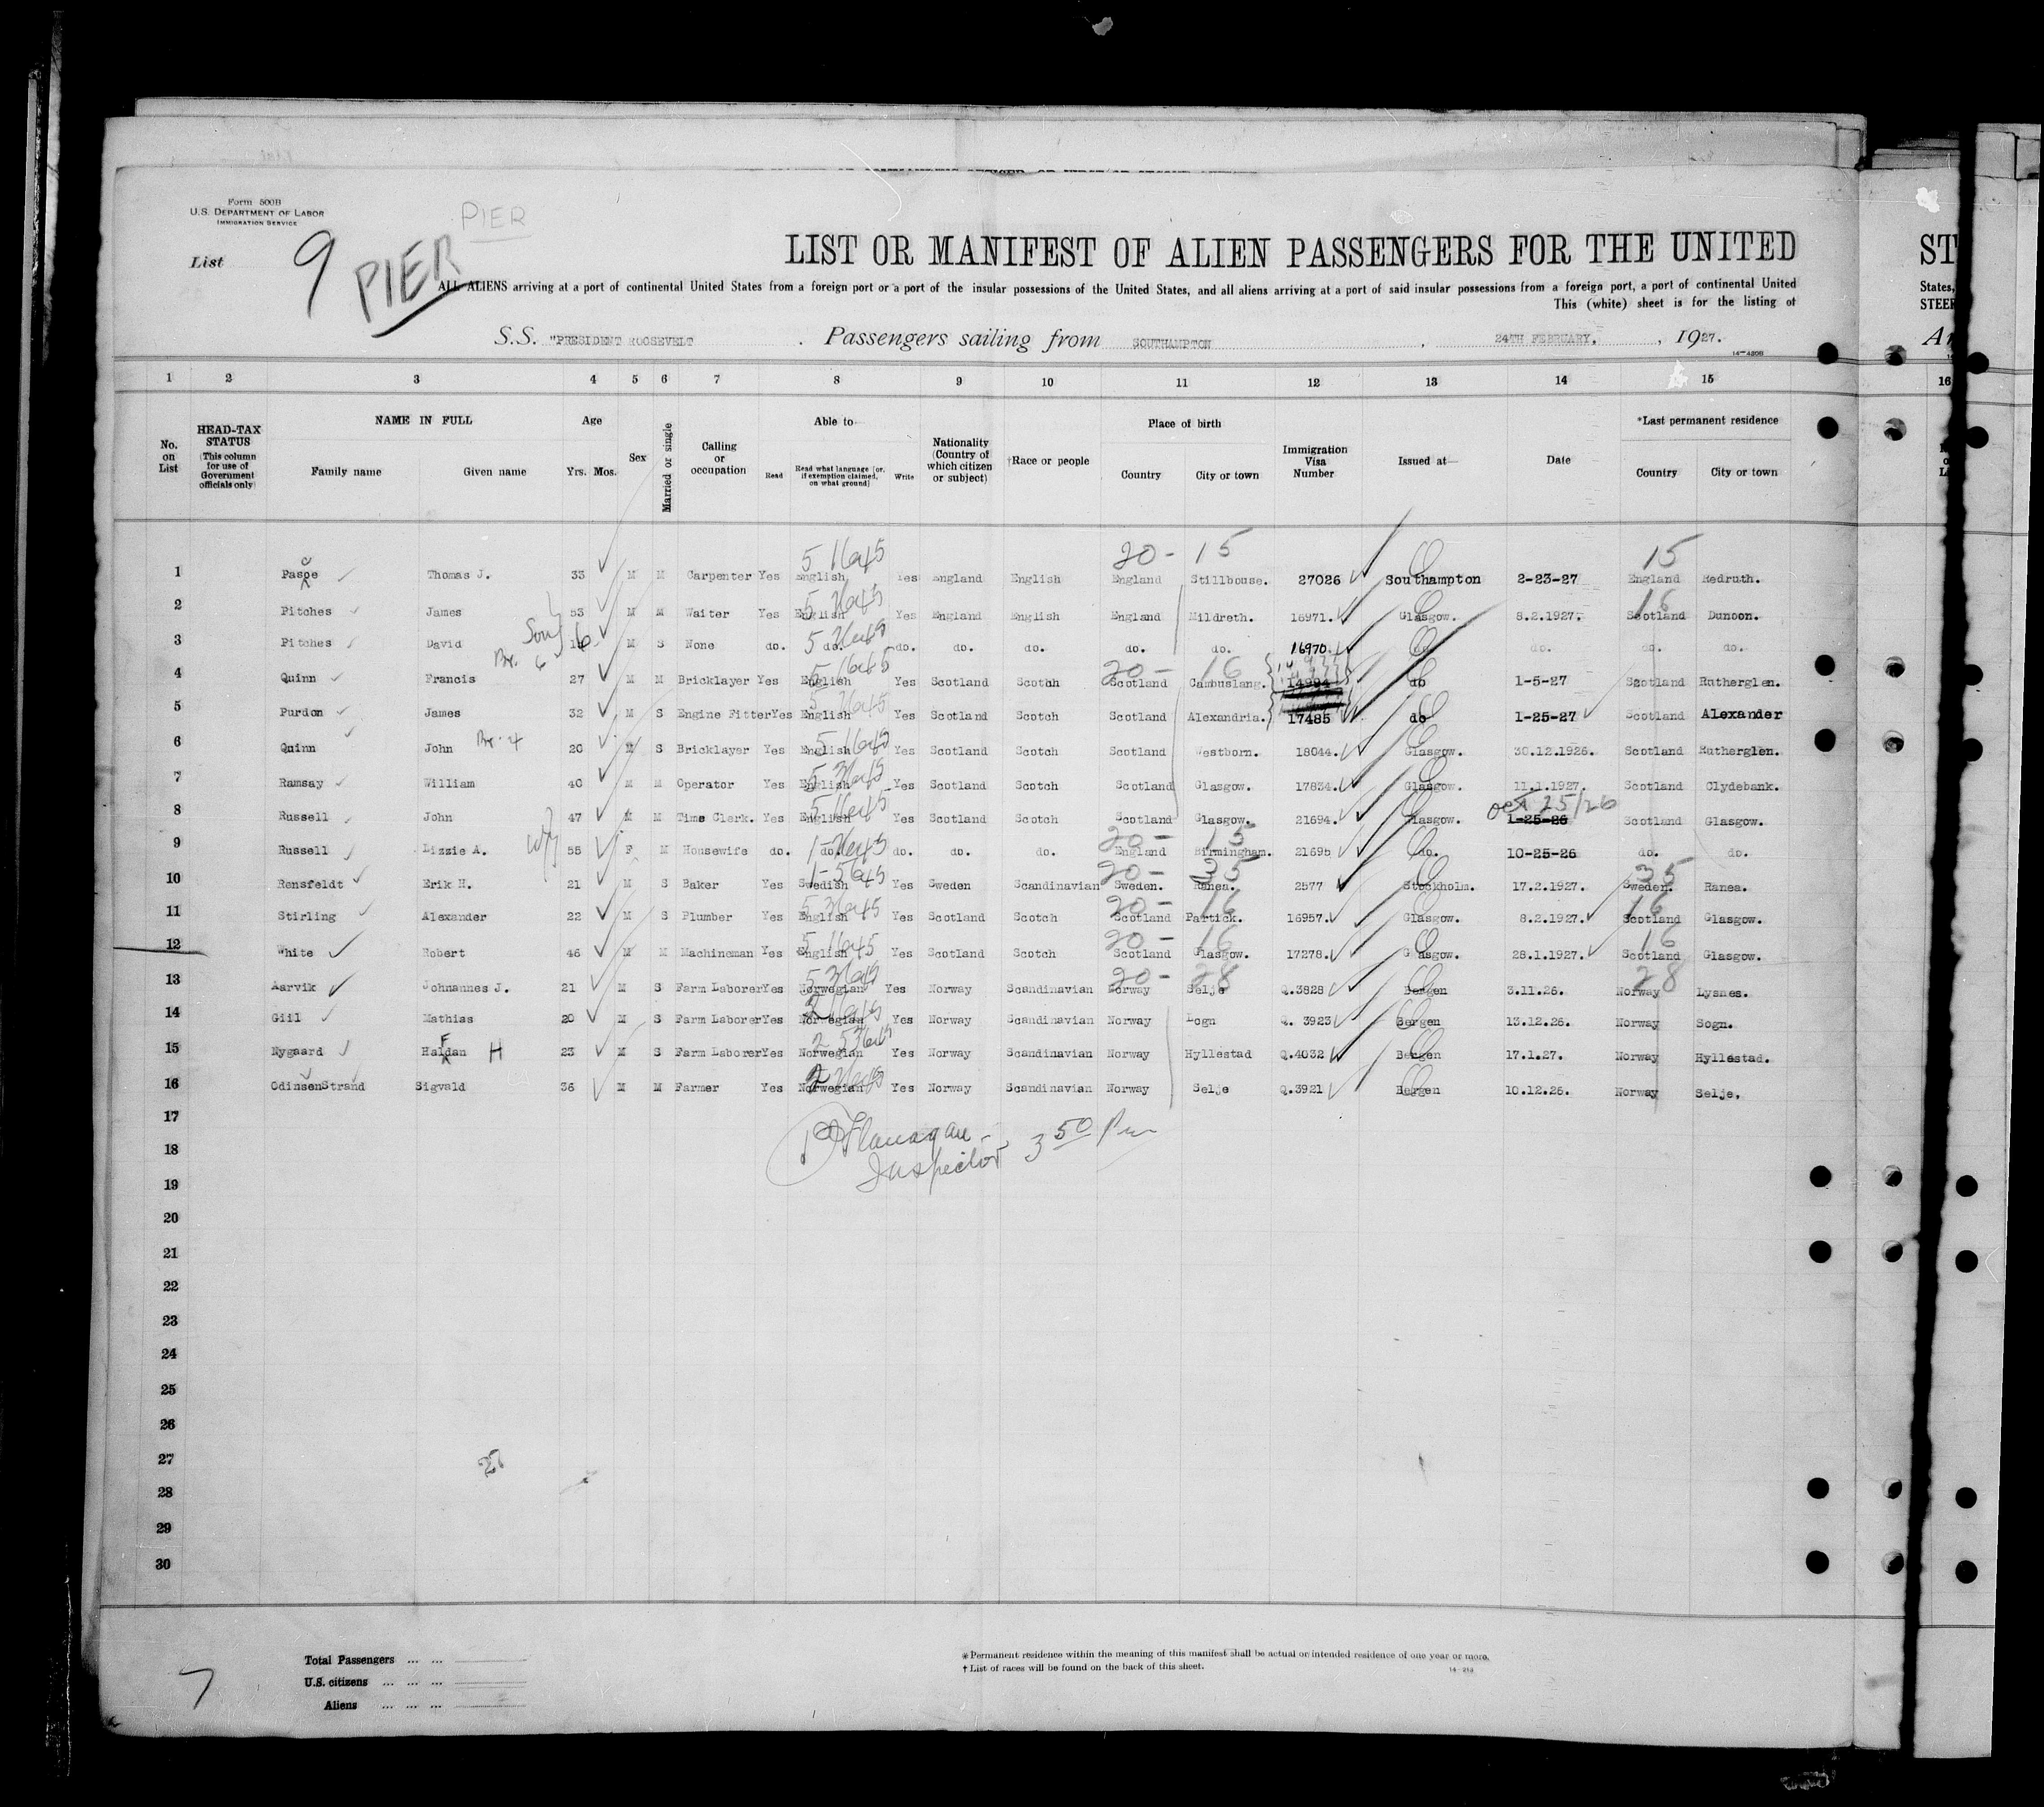 Form 500B
U.S. DEPARTMENT OF LABOR
IMMIGRATION SERVICE
PIER
List 9 PIER
LIST OR MANIFEST OF ALIEN PASSENGERS FOR THE UNITED ST
ALL ALIENS arriving at a port of continental United States from a foreign port or a port of the insular possessions of the United States, and all aliens arriving at a port of said insular possessions from a foreign port, a port of continental United States,
This (white) sheet is for the listing of STEER
S.S. "PRESIDENT ROOSEVELT . Passengers sailing from SOUTHAMPTON , 24TH FEBRUARY. , 1927. Ar
14-420B
1 2 3 4 5 6 7 8 9 10 11 12 13 14 15 16
No. on List HEAD-TAX STATUS (This column for use of Government officials only) NAME IN FULL Family name Given name Age Yrs. Mos. Sex Married or single Calling or occupation Able to— Read Read what language [or, if exemption claimed, on what ground] Write Nationality (Country of which citizen or subject) †Race or people Place of birth Country City or town Immigration Visa Number Issued at— Date *Last permanent residence Country City or town
5 16 45 20- 15 15
1 Pascoe Thomas J. 33 M M Carpenter Yes English Yes England English England Stillhouse. 27026 Southampton 2-23-27 England Redruth.
2 Pitches James 53 M M Waiter Yes English Yes England English England Mildreth. 16971. Glasgow. 8.2.1927. Scotland Dunoon. 16
3 Pitches David Son 16 M S None do. do. do. do. do. do. do. 16970. do do. do. do.
4 Quinn Francis Br. 6 27 M M Bricklayer Yes English Yes Scotland Scothh Scotland Cambuslang. 14994 do 1-5-27 Scotland Rutherglen. 20- 16
5 Purdon James 32 M S Engine Fitter Yes English Yes Scotland Scotch Scotland Alexandria. 17485 do 1-25-27 Scotland Alexander
6 Quinn John Br. 4 20 M S Bricklayer Yes English Yes Scotland Scotch Scotland Westborn. 18044. Glasgow. 30.12.1926. Scotland Rutherglen.
7 Ramsay William 40 M M Operator Yes English Yes Scotland Scotch Scotland Glasgow. 17834. Glasgow. 11.1.1927. Scotland Clydebank.
8 Russell John 47 M M Time Clerk. Yes English Yes Scotland Scotch Scotland Glasgow. 21694. Glasgow. 1-25-26 Oct 25/26 Scotland Glasgow.
9 Russell Lizzie A. wf 55 F M Housewife do. do. do. do. do. England Birmingham. 21695 do. 10-25-26 do. do. 20- 15
10 Rensfeldt Erik H. 21 M S Baker Yes Swedish Yes Sweden Scandinavian Sweden. Ranea. 2577 Stockholm. 17.2.1927. Sweden. Ranea. 20- 35 35
11 Stirling Alexander 22 M S Plumber Yes English Yes Scotland Scotch Scotland Partick. 16957. Glasgow. 8.2.1927. Scotland Glasgow. 20- 16 16
12 White Robert 46 M M Machineman Yes English Yes Scotland Scotch Scotland Glasgow. 17278. Glasgow. 28.1.1927. Scotland Glasgow. 20- 16 16
13 Aarvik Johnannes J. 21 M S Farm Laborer Yes Norwegian Yes Norway Scandinavian Norway Selje Q.3828 Bergen 3.11.26. Norway Lysnes. 20- 28 28
14 Giil Mathias 20 M S Farm Laborer Yes Norwegian Yes Norway Scandinavian Norway Logn Q. 3923 Bergen 13.12.26. Norway Sogn.
15 Nygaard Halfdan H 23 M S Farm Laborer Yes Norwegian Yes Norway Scandinavian Norway Hyllestad Q.4032 Bergen 17.1.27. Norway Hyllestad.
16 OdinsenStrand Sigvald 36 M M Farmer Yes Norwegian Yes Norway Scandinavian Norway Selje Q.3921 Bergen 10.12.26. Norway Selje.
17
Flanagan
18
Inspector 3 50 Pm
19
20
21
22
23
24
25
26
27
28
29
30
Total Passengers ... ...
U.S. citizens ... ... ...
Aliens ... ... ...
7
* Permanent residence within the meaning of this manifest shall be actual or intended residence of one year or more.
† List of races will be found on the back of this sheet.